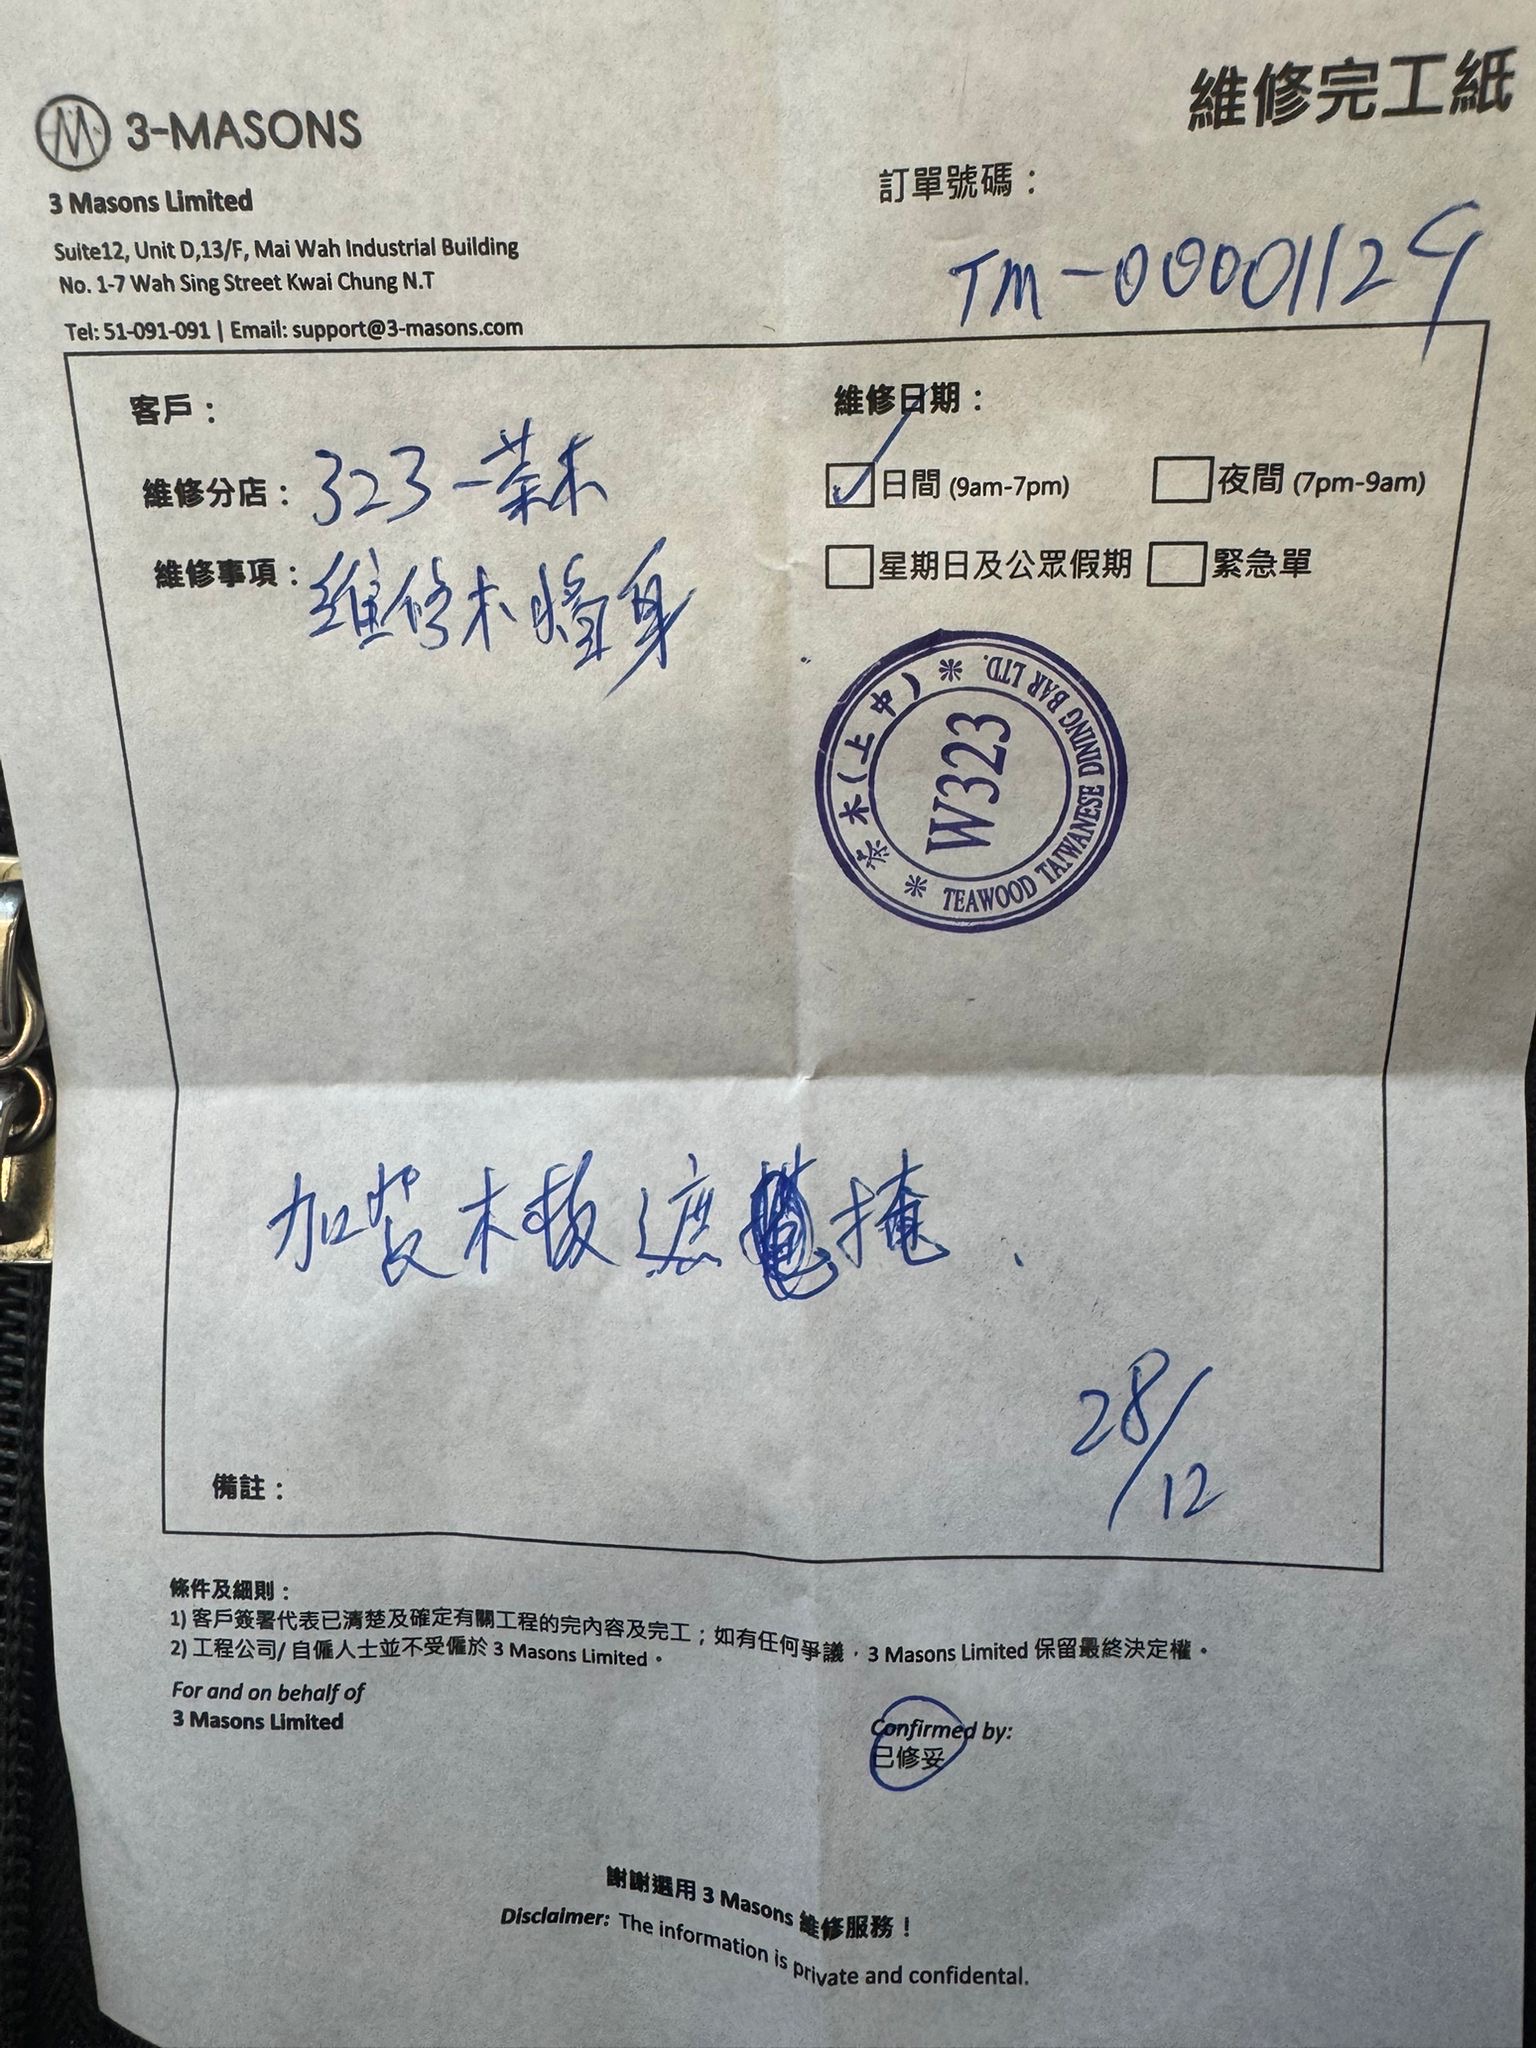 3-MASONS
維修完工紙
3 Masons Limited
訂單號碼：
Suite12, Unit D,13/F, Mai Wah Industrial Building
No. 1-7 Wah Sing Street Kwai Chung N.T
TM-00001129
Tel: 51-091-091 | Email: support@3-masons.com
客戶：
維修日期：
維修分店： 323-茶木
日間 (9am-7pm)
夜間 (7pm-9am)
維修事項： 維修木牆身
星期日及公眾假期
緊急單
茶木(上中)
TEAWOOD TAIWANESE DINING BAR LTD.
W323
加裝木板遮掩.
28/12
備註：
條件及細則：
1) 客戶簽署代表已清楚及確定有關工程的完內容及完工；如有任何爭議，3 Masons Limited 保留最終決定權。
2) 工程公司/ 自僱人士並不受僱於 3 Masons Limited。
For and on behalf of
3 Masons Limited
Confirmed by:
已修妥
謝謝選用 3 Masons 維修服務！
Disclaimer: The information is private and confidential.